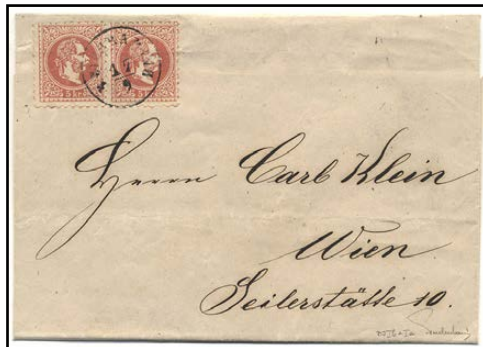 Herrn Carl Klein
Wien
Seilerstätte 10.